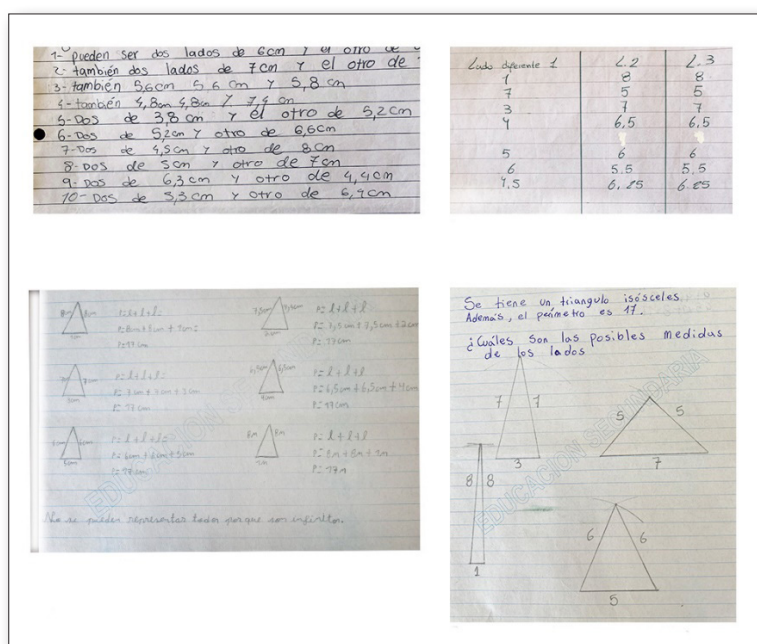 1- pueden ser dos lados de 6cm y el otro de
2- también dos lados de 7cm y el otro de
3- también 5,6cm 5,6 cm y 5,8 cm
4- también 4,8cm 4,8cm y 7,4 cm
5- Dos de 3,8 cm y el otro de 5,2cm
6- Dos de 5,2cm y otro de 6,6cm
7- Dos de 4,5cm y otro de 8cm
8- Dos de 5cm y otro de 7cm
9- Dos de 6,3 cm y otro de 4,4cm
10- Dos de 5,3cm y otro de 6,4cm
Lado diferente 1 L.2 L.3
1 8 8
7 5 5
3 7 7
4 6,5 6,5
5 6 6
6 5.5 5.5
4,5 6,25 6.25
P=l+l+l=
P=8cm+8cm+1cm=
P=17cm
P=l+l+l
P=7,5cm+7,5cm+2cm
P=17cm
7cm
P=l+l+l=
P=7cm+7cm+3cm
P=17cm
6,5cm 6,5cm
4cm
P=l+l+l
P=6,5cm+6,5cm+4cm
P=17cm
P=l+l+l=
P=6cm+6cm+5cm
P=17cm
8m 8m
P=l+l+l
P=8m+8m+1m
P=17m
No se pueden representar todos porque son infinitos.
Se tiene un triangulo isósceles.
Además, el perímetro es 17.
¿Cuáles son las posibles medidas
de los lados
7 7
3
5 5
7
8 8
1
6 6
5
EDUCACION SECUNDARIA